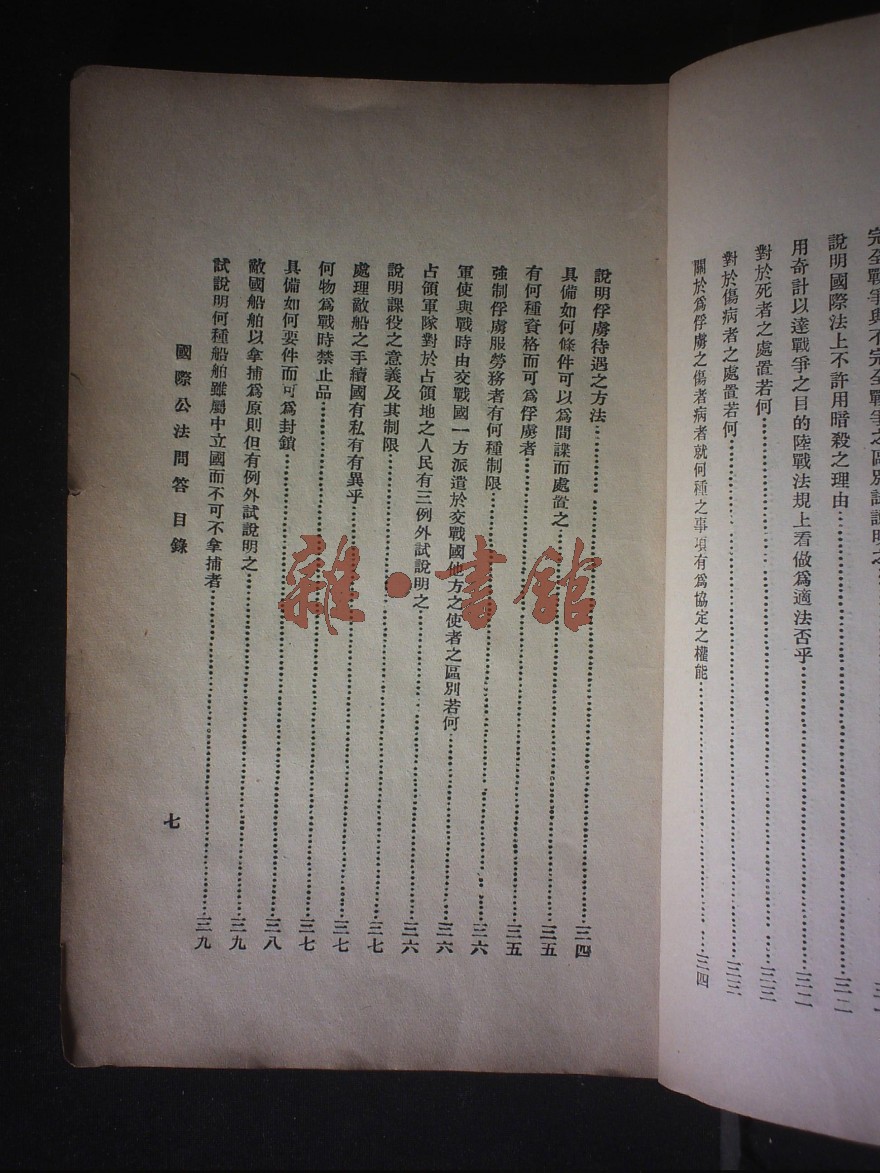 說明國際法上不許用暗殺之理由……三二
用奇計以達戰爭之目的陸戰法規上看做爲適法否乎……三二
對於死者之處置若何……三三
對於傷病者之處置若何……三三
關於爲俘虜之傷者病者就何種之事項有爲協定之權能……三四
說明俘虜待遇之方法……三四
具備如何條件可以爲間諜而處置之……三五
有何種資格而可爲俘虜者……三五
強制俘虜服勞務者有何種制限……三六
軍使與戰時由交戰國一方派遣於交戰國他方之使者之區別若何……三六
占領軍隊對於占領地之人民有三例外試說明之……三六
說明課役之意義及其制限……三七
處理敵船之手續國有私有有異乎……三七
何物爲戰時禁止品……三七
具備如何要件而可爲封鎖……三八
敵國船舶以拿捕爲原則但有例外試說明之……三九
試說明何種船舶雖屬中立國而不可不拿捕者……三九
國際公法問答 目錄
七
雜·書館